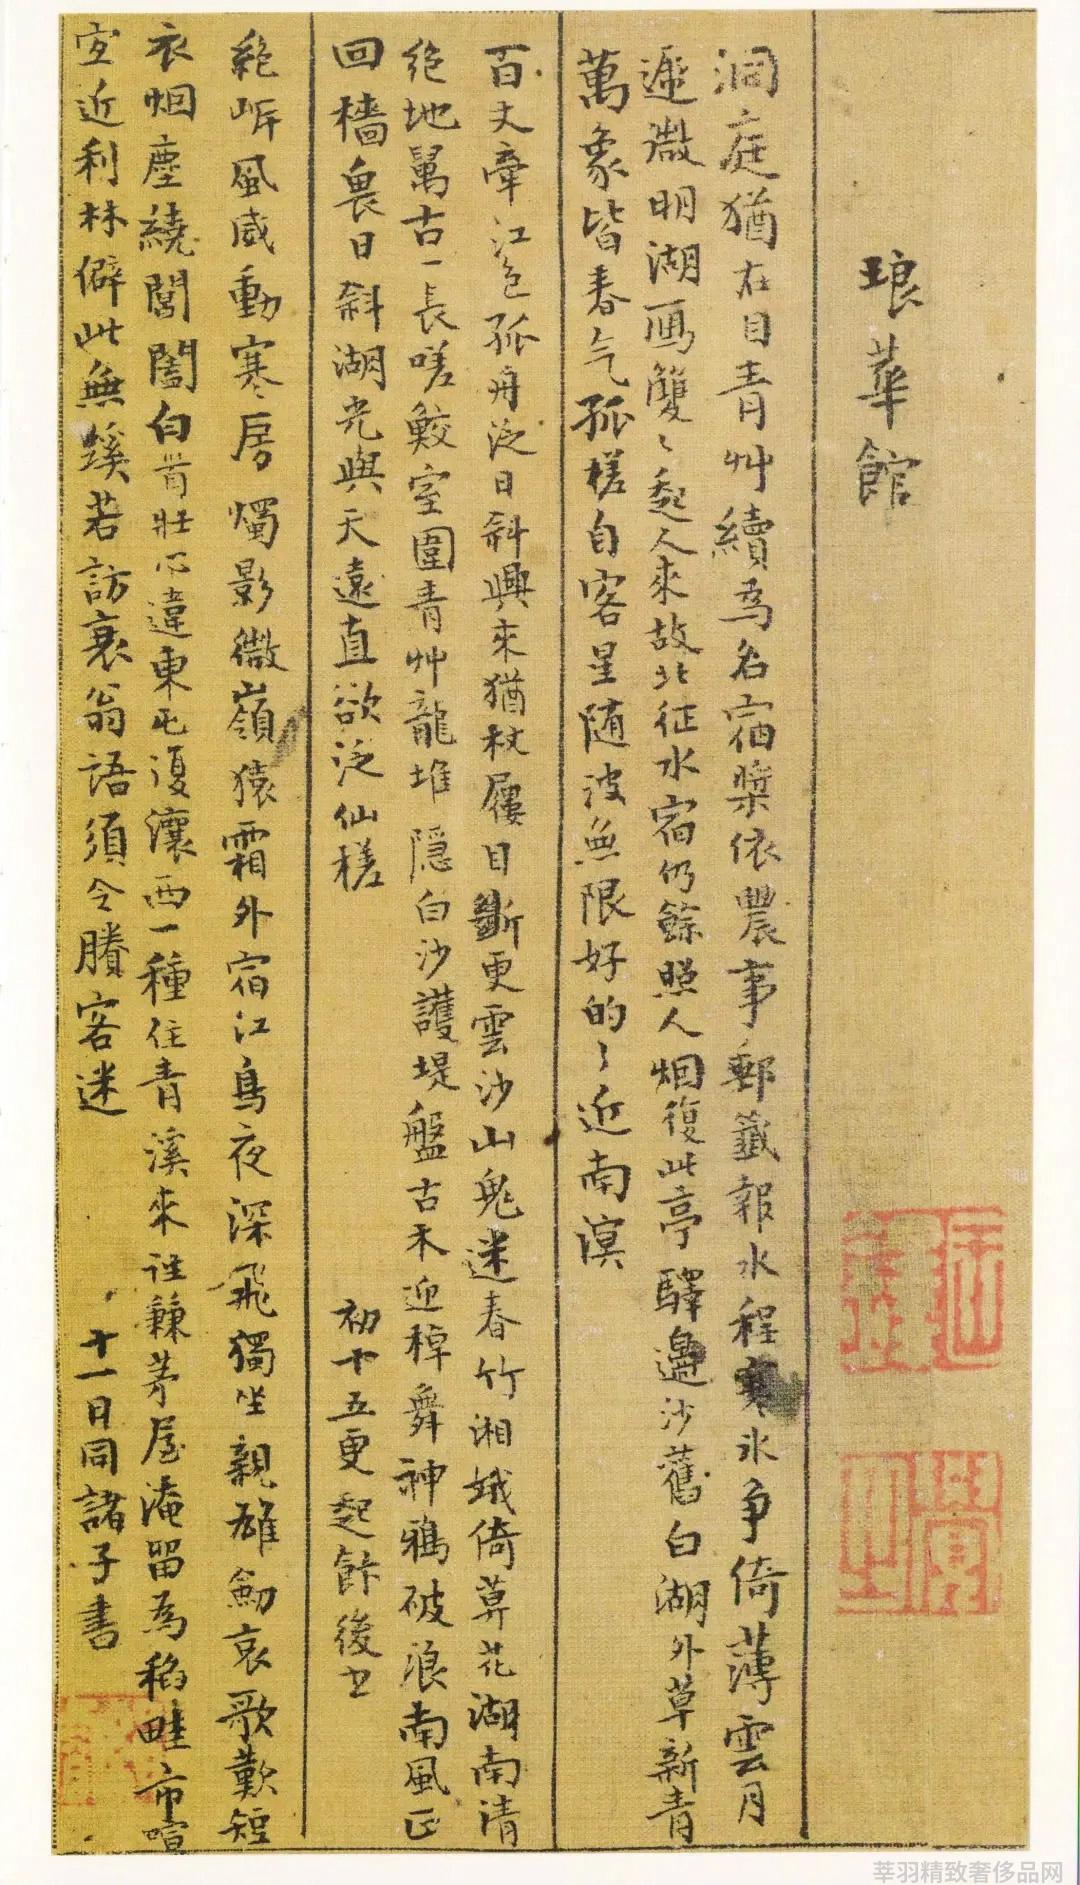 琅華館
洞庭猶在目青艸續為名宿槳依農事郵籤報水程寒氷争倚薄雲月
遞微明湖雁雙〻起人來故北征水宿仍餘照人烟復此亭驛邊沙舊白湖外草新青
萬象皆春气孤槎自客星随波無限好的〻近南溟
百丈牽江色孤舟泛日斜興來猶杖屨目斷更雲沙山鬼迷春竹湘娥倚莫花湖南清
絶地萬古一長嗟鮫室圍青艸龍堆隠白沙護堤盤古木迎棹舞神鴉破浪南風正
回檣畏日斜湖光與天遠直欲泛仙槎
初十五更起飰後書
絶岍風威動寒房燭影微嶺猿霜外宿江鳥夜深飛獨坐親雄劍哀歌歎短
衣烟塵繞閶闔白首壯心違東屯復瀼西一種住青溪來往蒹茅屋淹留為稻畦市喧
宜近利林僻此無蹊若訪衰翁語須令賸客迷
十一日同諸子書
莘羽精致奢侈品网